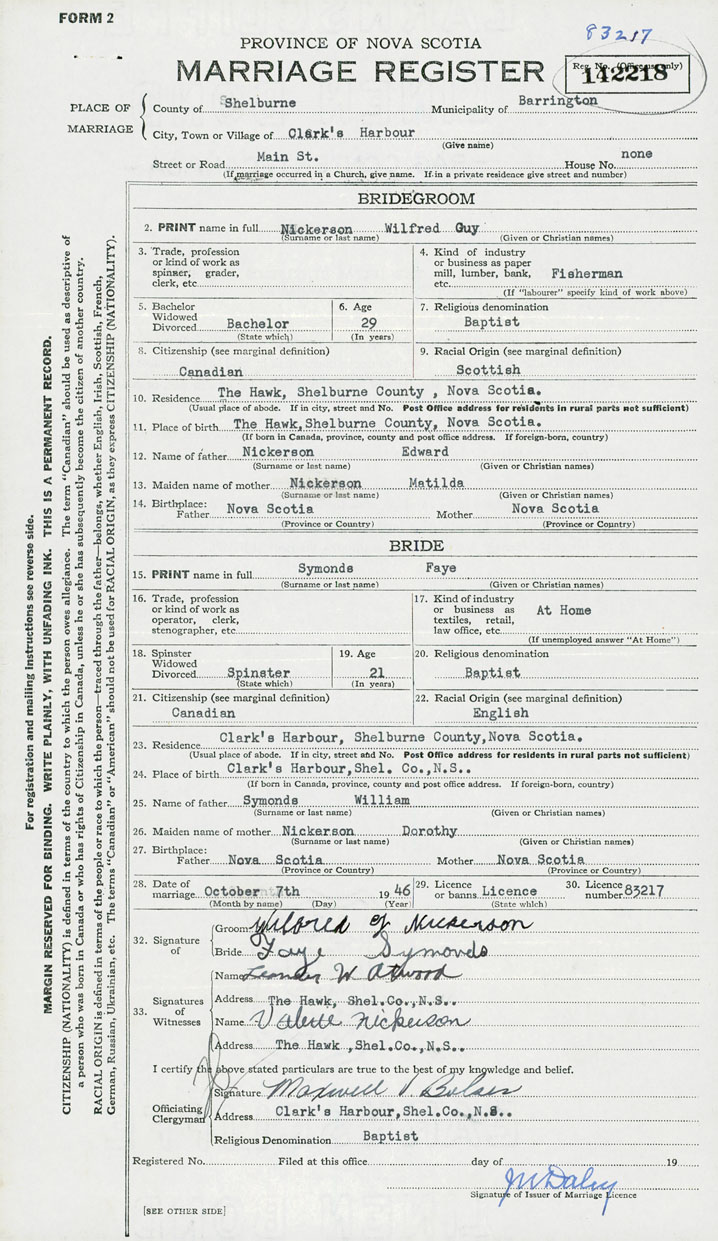 FORM 2
83217
PROVINCE OF NOVA SCOTIA
MARRIAGE REGISTER
Reg. No. (Office use only)
142218
PLACE OF MARRIAGE
County of Shelburne Municipality of Barrington
City, Town or Village of Clark's Harbour
(Give name)
Street or Road Main St. House No. none
(If marriage occurred in a Church, give name. If in a private residence give street and number)
BRIDEGROOM
2. PRINT name in full Nickerson Wilfred Guy
(Surname or last name) (Given or Christian names)
3. Trade, profession or kind of work as spinner, grader, clerk, etc.
4. Kind of industry or business as paper mill, lumber, bank, etc. Fisherman
(If "labourer" specify kind of work above)
5. Bachelor Widowed Divorced Bachelor
(State which)
6. Age 29
(In years)
7. Religious denomination
Baptist
8. Citizenship (see marginal definition)
Canadian
9. Racial Origin (see marginal definition)
Scottish
10. Residence The Hawk, Shelburne County , Nova Scotia.
(Usual place of abode. If in city, street and No. Post Office address for residents in rural parts not sufficient)
11. Place of birth The Hawk,Shelburne County, Nova Scotia.
(If born in Canada, province, county and post office address. If foreign-born, country)
12. Name of father Nickerson Edward
(Surname or last name) (Given or Christian names)
13. Maiden name of mother Nickerson Matilda
(Surname or last name) (Given or Christian names)
14. Birthplace: Father Nova Scotia Mother Nova Scotia
(Province or Country) (Province or Country)
BRIDE
15. PRINT name in full Symonds Faye
(Surname or last name) (Given or Christian names)
16. Trade, profession or kind of work as operator, clerk, stenographer, etc.
17. Kind of industry or business as textiles, retail, law office, etc. At Home
(If unemployed answer "At Home")
18. Spinster Widowed Divorced Spinster
(State which)
19. Age 21
(In years)
20. Religious denomination
Baptist
21. Citizenship (see marginal definition)
Canadian
22. Racial Origin (see marginal definition)
English
23. Residence Clark's Harbour, Shelburne County,Nova Scotia.
(Usual place of abode. If in city, street and No. Post Office address for residents in rural parts not sufficient)
24. Place of birth Clark's Harbour,Shel. Co.,N.S..
(If born in Canada, province, county and post office address. If foreign-born, country)
25. Name of father Symonds William
(Surname or last name) (Given or Christian names)
26. Maiden name of mother Nickerson Dorothy
(Surname or last name) (Given or Christian names)
27. Birthplace: Father Nova Scotia Mother Nova Scotia
(Province or Country) (Province or Country)
28. Date of marriage October 7th 1946
(Month by name) (Day) (Year)
29. Licence or banns Licence
(State which)
30. Licence number 83217
32. Signature of
Groom Wilfred G Nickerson
Bride Faye Symonds
33. Signatures of Witnesses
Name Leander W Atwood
Address The Hawk, Shel.Co.,N.S..
Name Valerie Nickerson
Address The Hawk ,Shel.Co.,N.S..
I certify the above stated particulars are true to the best of my knowledge and belief.
Officiating Clergyman
Signature Maxwell Bolser
Address Clark's Harbour,Shel.Co.,N.S..
Religious Denomination Baptist
Registered No. Filed at this office day of 19
J W Daley
Signature of Issuer of Marriage Licence
[SEE OTHER SIDE]
For registration and mailing instructions see reverse side.
MARGIN RESERVED FOR BINDING. WRITE PLAINLY, WITH UNFADING INK. THIS IS A PERMANENT RECORD.
CITIZENSHIP (NATIONALITY) is defined in terms of the country to which the person owes allegiance. The term "Canadian" should be used as descriptive of
a person who was born in Canada or who has rights of Citizenship in Canada, unless he or she has subsequently become the citizen of another country.
RACIAL ORIGIN is defined in terms of the people or race to which the person—traced through the father—belongs, whether English, Irish, Scottish, French,
German, Russian, Ukrainian, etc. The terms "Canadian" or "American" should not be used for RACIAL ORIGIN, as they express CITIZENSHIP (NATIONALITY).